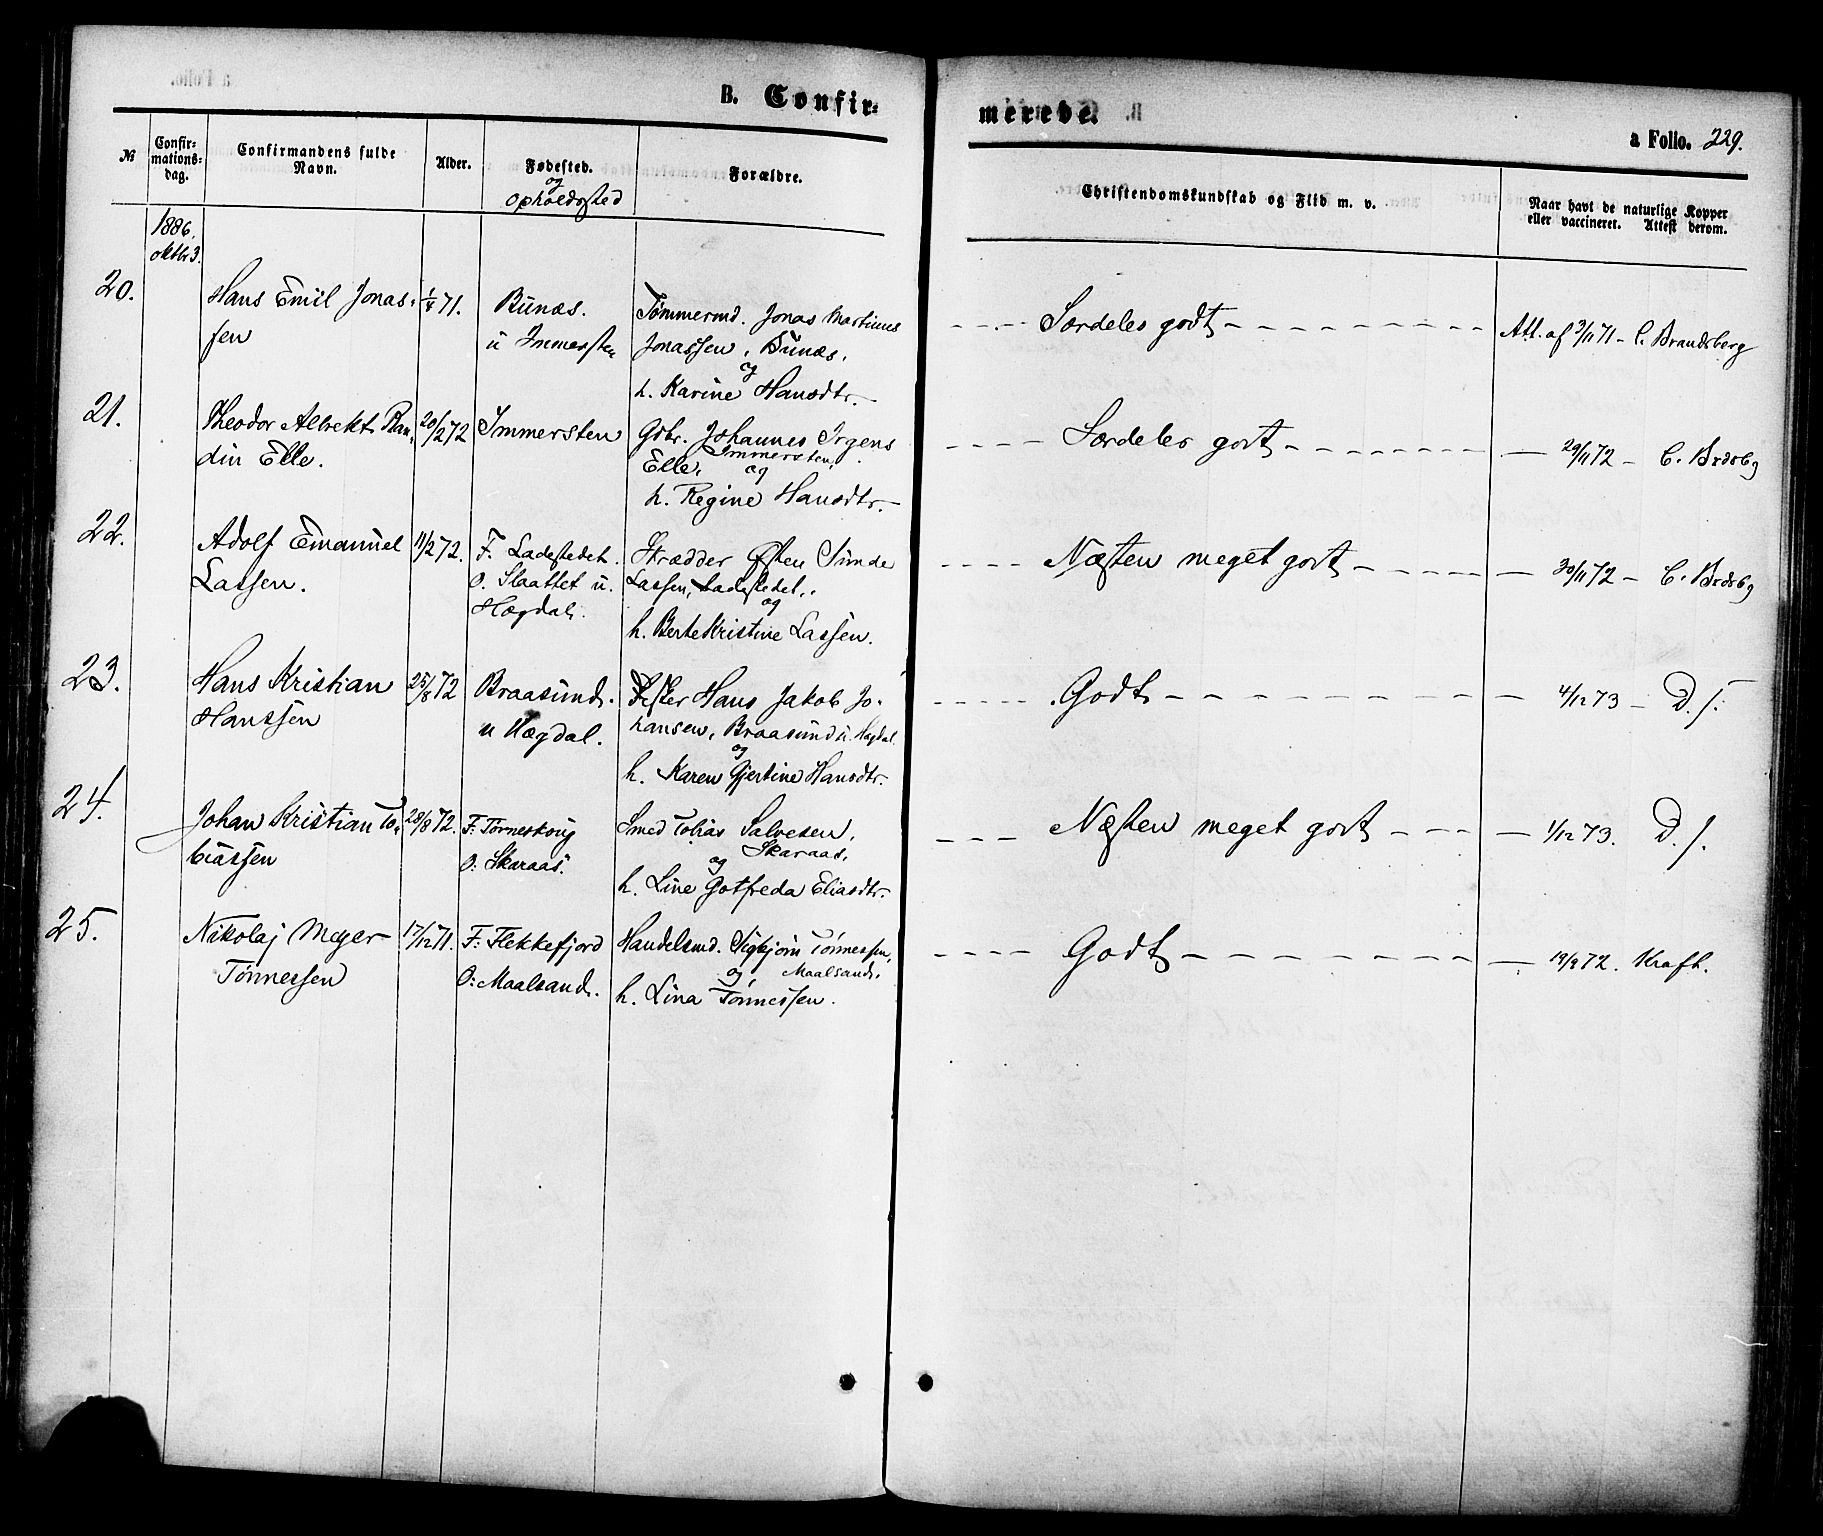 B. Confir-
merede.
a Folio. 229.
№
Confir-
mations-
dag.
Confirmandens fulde
Navn.
Alder.
Fødested.
og
opholdssted
Forældre.
Christendomskundskab og Flid m. v.
Naar havt de naturlige Kopper
eller vaccineret. Attest derom.
1886.
oktbr 3.
20.
Hans Emil Jonas-
sen
1/4 71.
Bunæs.
u Immersten
Tømmermd. Jonas Martinus
Jonassen, Bunæs,
og
h. Karine Hansdtr.
Særdeles godt
Att. af 3/11 71 - C. Brandsberg
21.
Theodor Albrekt Ran-
din Elle.
20/2 72
Immersten
Gbr. Johannes Irgens
Elle, Immersten,
og
h. Regine Hansdtr.
Særdeles godt
29/11 72 - C. Brdsbg
22.
Adolf Emanuel
Lassen.
11/2 72.
F. Ladestedet.
O. Slaattet u.
Hægdal.
Skrædder Østen Sunde
Lassen, Ladestedet,
og
h. Berte Kristine Lassen.
Næsten meget godt
30/11 72 - C. Brdsbg
23.
Hans Kristian
Hanssen
25/8 72
Braasund.
u Hægdal.
Fisker Hans Jakob Jo-
hansen, Braasund u. Hægdal.
og
h. Karen Gjertine Hansdtr.
Godt
4/12 73 - D. S.
24.
Johan Kristian To-
biassen
28/8 72.
F. Tørneskoug
O. Skaraas.
Smed Tobias Salvesen,
Skaraas,
og
h. Line Gotfreda Eliasdtr.
Næsten meget godt
1/12 73. D. S.
25.
Nikolaj Meyer
Tönnessen
17/12 71.
F: Flekkefjord
O: Maalsand.
Handelsmd. Sigbjørn Tönnessen,
og Maalsand,
h. Lina Tönnessen.
Godt
19/9 72. Kraft.